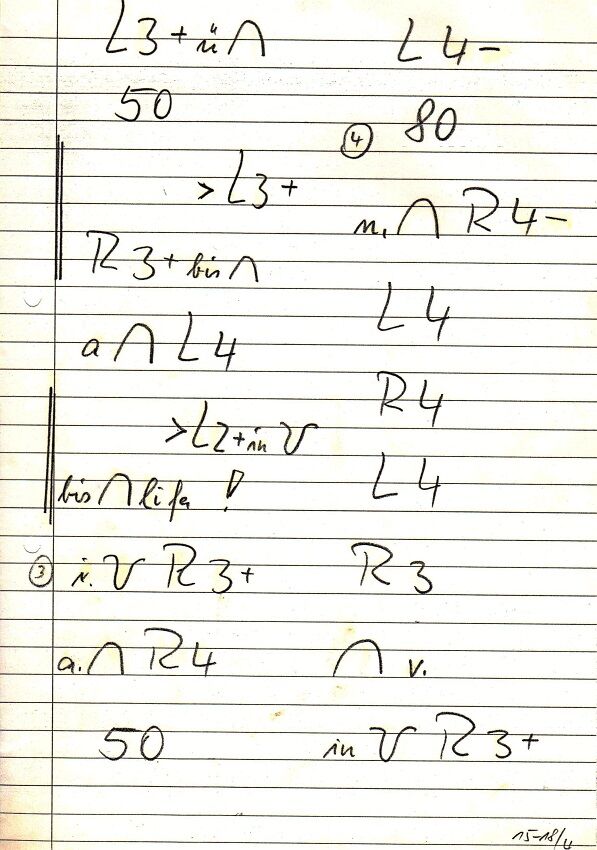 L3+ ü ∩
50
> L3+
R3+ bis ∩
a ∩ L4
> L2+ in V
bis ∩ lifa !
③ i. V R3+
a. ∩ R4
50
L4-
④ 80
n. ∩ R4-
L4
R4
L4
R3
∩ v.
in V R3+
15-18/4